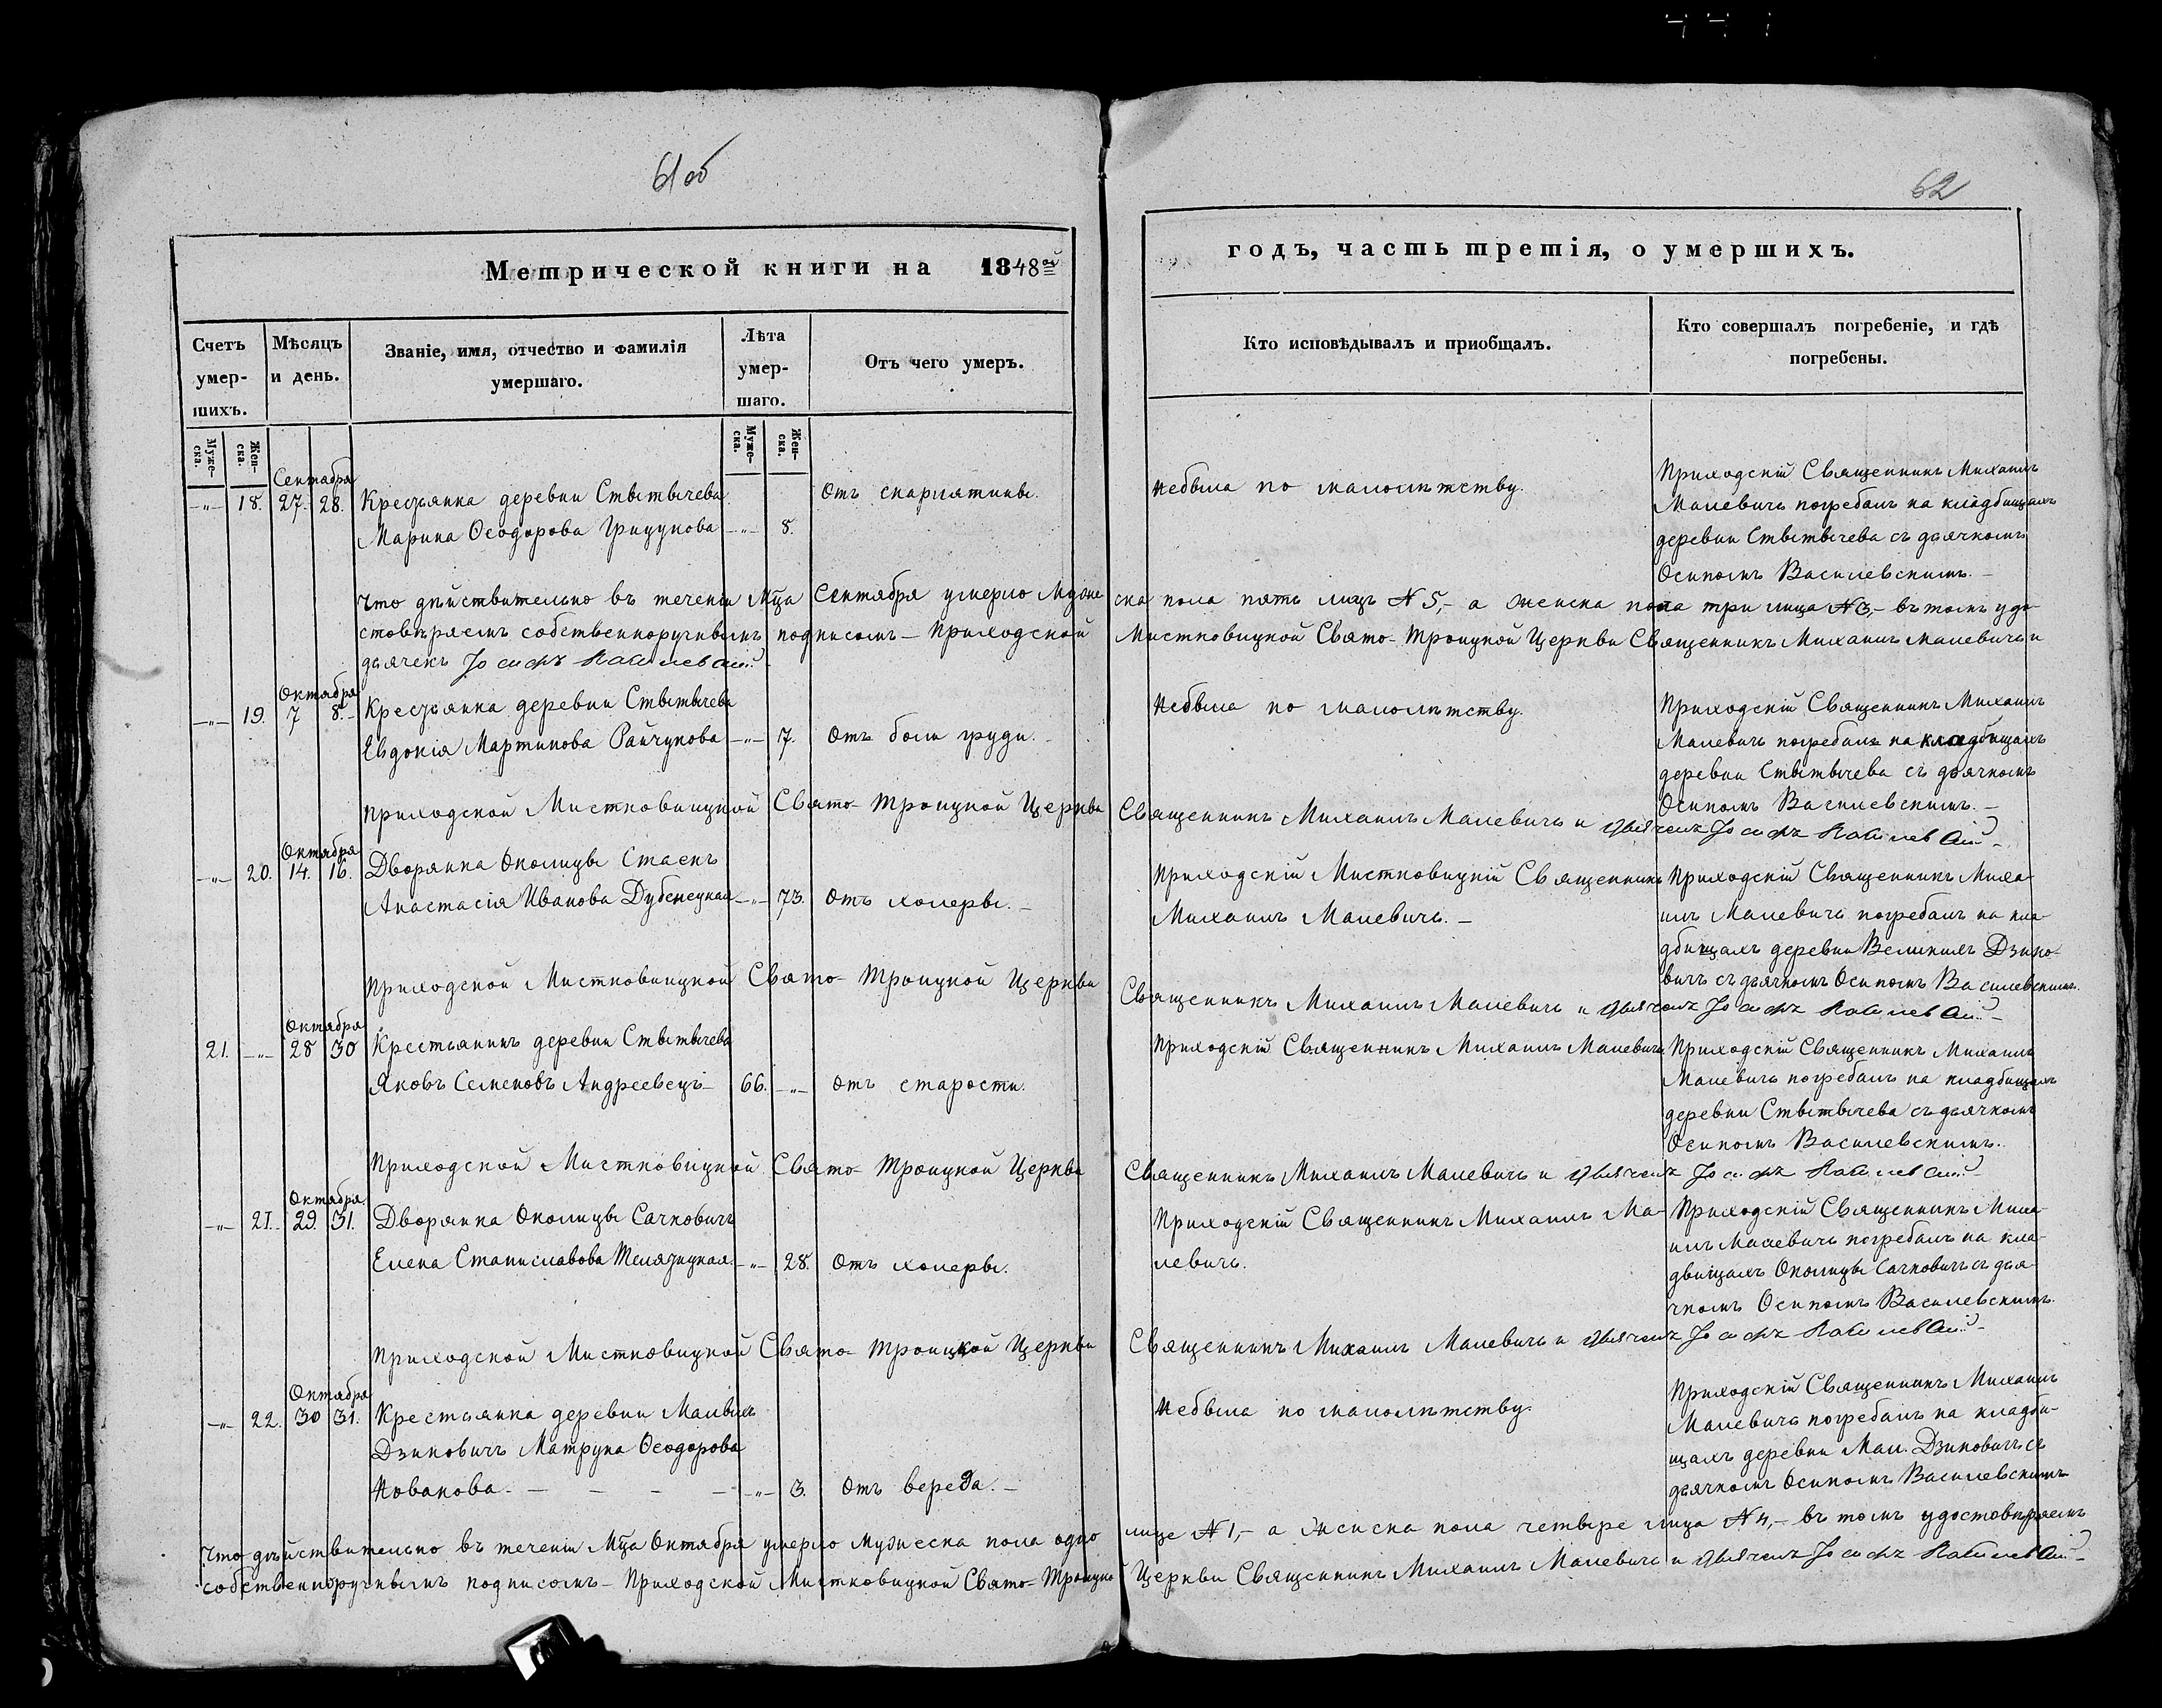 61 об
62
Метрической книги на 1848ой
годъ, часть третія, о умершихъ.
Счетъ умер-шихъ.
Мѣсяцъ и день.
Званіе, имя, отчество и фамилія
умершаго.
Лѣта умер-шаго.
Отъ чего умеръ.
Кто исповѣдывалъ и приобщалъ.
Кто совершалъ погребеніе, и гдѣ
погребены.
Муже-ска.
Жен-ска.
Муже-ска.
Жен-ска.
Сентября
-"- 18. 27. 28. Крестьянка деревни Стытычева
Марина Ѳеодорова Грицукова -"- 8.
Отъ скарлятины.
Небыла по малолѣтству.
Приходскій Священникъ Михаилъ
Малевичъ погребалъ на кладбищахъ
деревни Стытычева съ дьячкомъ
Осипомъ Василевскимъ.-
Что дѣйствительно въ теченіи Мца Сентября умерло Муже ска пола пять лицъ №5,- а Женска пола три лица №3,- въ томъ удо-
стовѣряемъ собственноручнымъ подписомъ- Приходской Мистковицкой Свято-Троицкой Церкви Священникъ Михаилъ Малевичъ и
дьячекъ Іосифъ Василевскій
Октября
-"- 19. 7 8.- Крестьянка деревни Стытычева
Евдокія Мартинова Райчукова -"- 7. Отъ боли груди.-
Небыла по малолѣтству.
Приходскій Священникъ Михаилъ
Малевичъ погребалъ на кладбищахъ
деревни Стытычева съ дьячкомъ
Осипомъ Василевскимъ.-
Приходской Мистковицкой Свято-Троицкой Церкви Священникъ Михаилъ Малевичъ и Дьячекъ Іосифъ Василевскій-
Октября
-"- 20. 14. 16. Дворянка Околицы Стаекъ
Анастасія Иванова Дубенецкая -"- 73. Отъ холеры.-
Приходскій Мистковицкій Священникъ
Михаилъ Малевичъ.-
Приходскій Священникъ Миха-
илъ Малевичъ погребалъ на кла-
дбищахъ деревни Великихъ Дзико-
вичъ съ дьячкомъ Осипомъ Василевскимъ.
Приходской Мистковицкой Свято-Троицкой Церкви Священникъ Михаилъ Малевичъ и Дьячекъ Іосифъ Василевскій-
Октября
21. -"- 28 30 Крестьянинъ деревни Стытычева
Яковъ Семеновъ Андреевецъ- 66. -"- Отъ старости.
Приходскій Священникъ Михаилъ Малевичъ
Приходскій Священникъ Михаилъ
Малевичъ погребалъ на кладбищахъ
деревни Стытычева съ дьячкомъ
Осипомъ Василевскимъ.
Приходской Мистковицкой Свято-Троицкой Церкви Священникъ Михаилъ Малевичъ и Дьячекъ Іосифъ Василевскій-
Октября
-"- 21. 29. 31. Дворянка Околицы Сачковичъ
Елена Станиславова Телязицкая. -"- 28. Отъ холеры.
Приходскій Священникъ Михаилъ Ма-
левичъ.
Приходскій Священникъ Миха-
илъ Малевичъ погребалъ на кла-
двищахъ Околицы Сачковичъ съ дья-
чкомъ Осипомъ Василевскимъ.
Приходской Мистковицкой Свято-Троицкой Церкви Священникъ Михаилъ Малевичъ и Дьячекъ Іосифъ Василевскій-
Октября
-"- 22. 30 31. Крестьянка деревни Малыхъ
Дзиковичъ Матруна Ѳеодорова
Новакова. - - - - -"- 3. Отъ вереда.-
Небыла по малолѣтству.
Приходскій Священникъ Михаилъ
Малевичъ погребалъ на кладби-
щахъ деревни Мал. Дзиковичъ съ
дьячкомъ Осипомъ Василевскимъ
Что дѣйствительно въ теченіи Мца Октября умерло мужеска пола одно лице №1,- а Женска пола четыре лица №4,- въ томъ удостовѣряемъ
собственноручнымъ подписомъ- Приходской Мистковицкой Свято-Троицко Церкви Священникъ Михаилъ Малевичъ и Дьячекъ Іосифъ Василевскій-